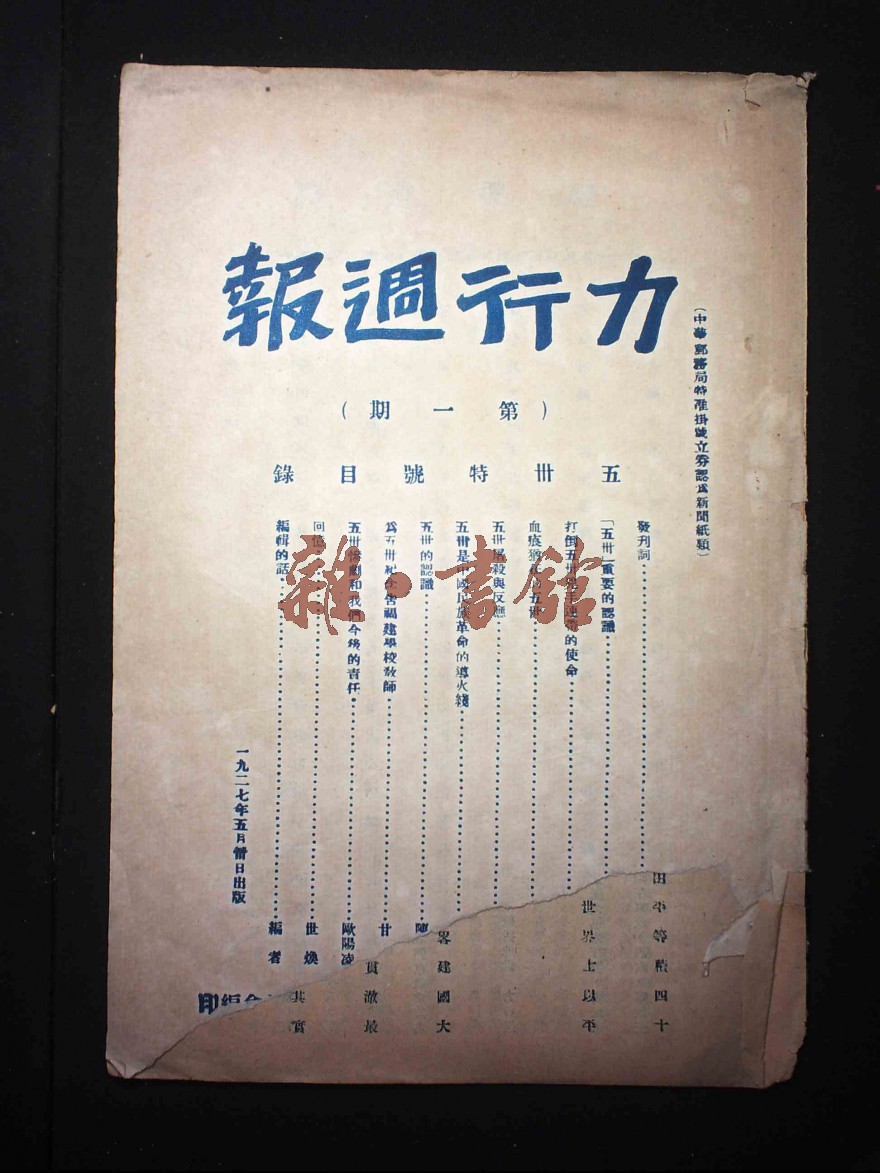 力行週報
（第一期）
（中華郵務局特准掛號立券認爲新聞紙類）
五卅特號目錄
發刊詞
「五卅」重要的認識
打倒五卅 的使命
血痕猶 五卅
五卅屠殺與反應
五卅是中國民族革命的導火綫
五卅的認識 陳
爲五卅紀念告福建學校敎師 甘
五卅慘劇和我們今後的責任 歐陽凌
回憶 世煥
編輯的話 編者
一九二七年五月卅日出版
會編印
田平等積四十
世界上以平
畧建國大
貫澈最
其實
雜·書館